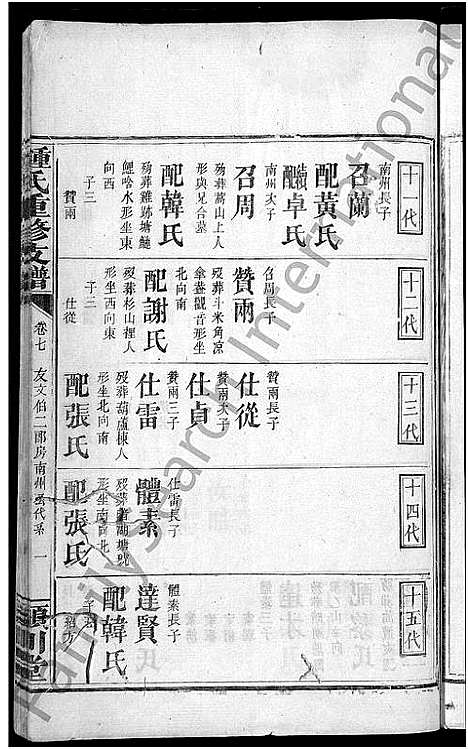 十一代
南州長子
召蘭
配黃氏
續配卓氏
南州次子
召周
殇葬蒿山上人
形與兄合墓
配韓氏
殇葬雞跡塘鯉
鯉唅水形坐東
向西
子三
贊雨
十二代
召周長子
贊雨
殁葬斗米角凉
傘盤觀音形坐
北向南
配謝氏
殁葬杉山裡人
形坐西向東
子三
仕從
十三代
贊雨長子
仕從
贊雨次子
仕貞
贊雨三子
仕雷
殁葬葫蘆棟人
形坐北向南
配張氏
十四代
仕雷長子
體素
形坐南向北
配張氏
十五代
體素長子
達賢
配韓氏
鍾氏重修支譜
卷七
友文伯二郎房南州公代系
一
潁川堂
FamilySearch International